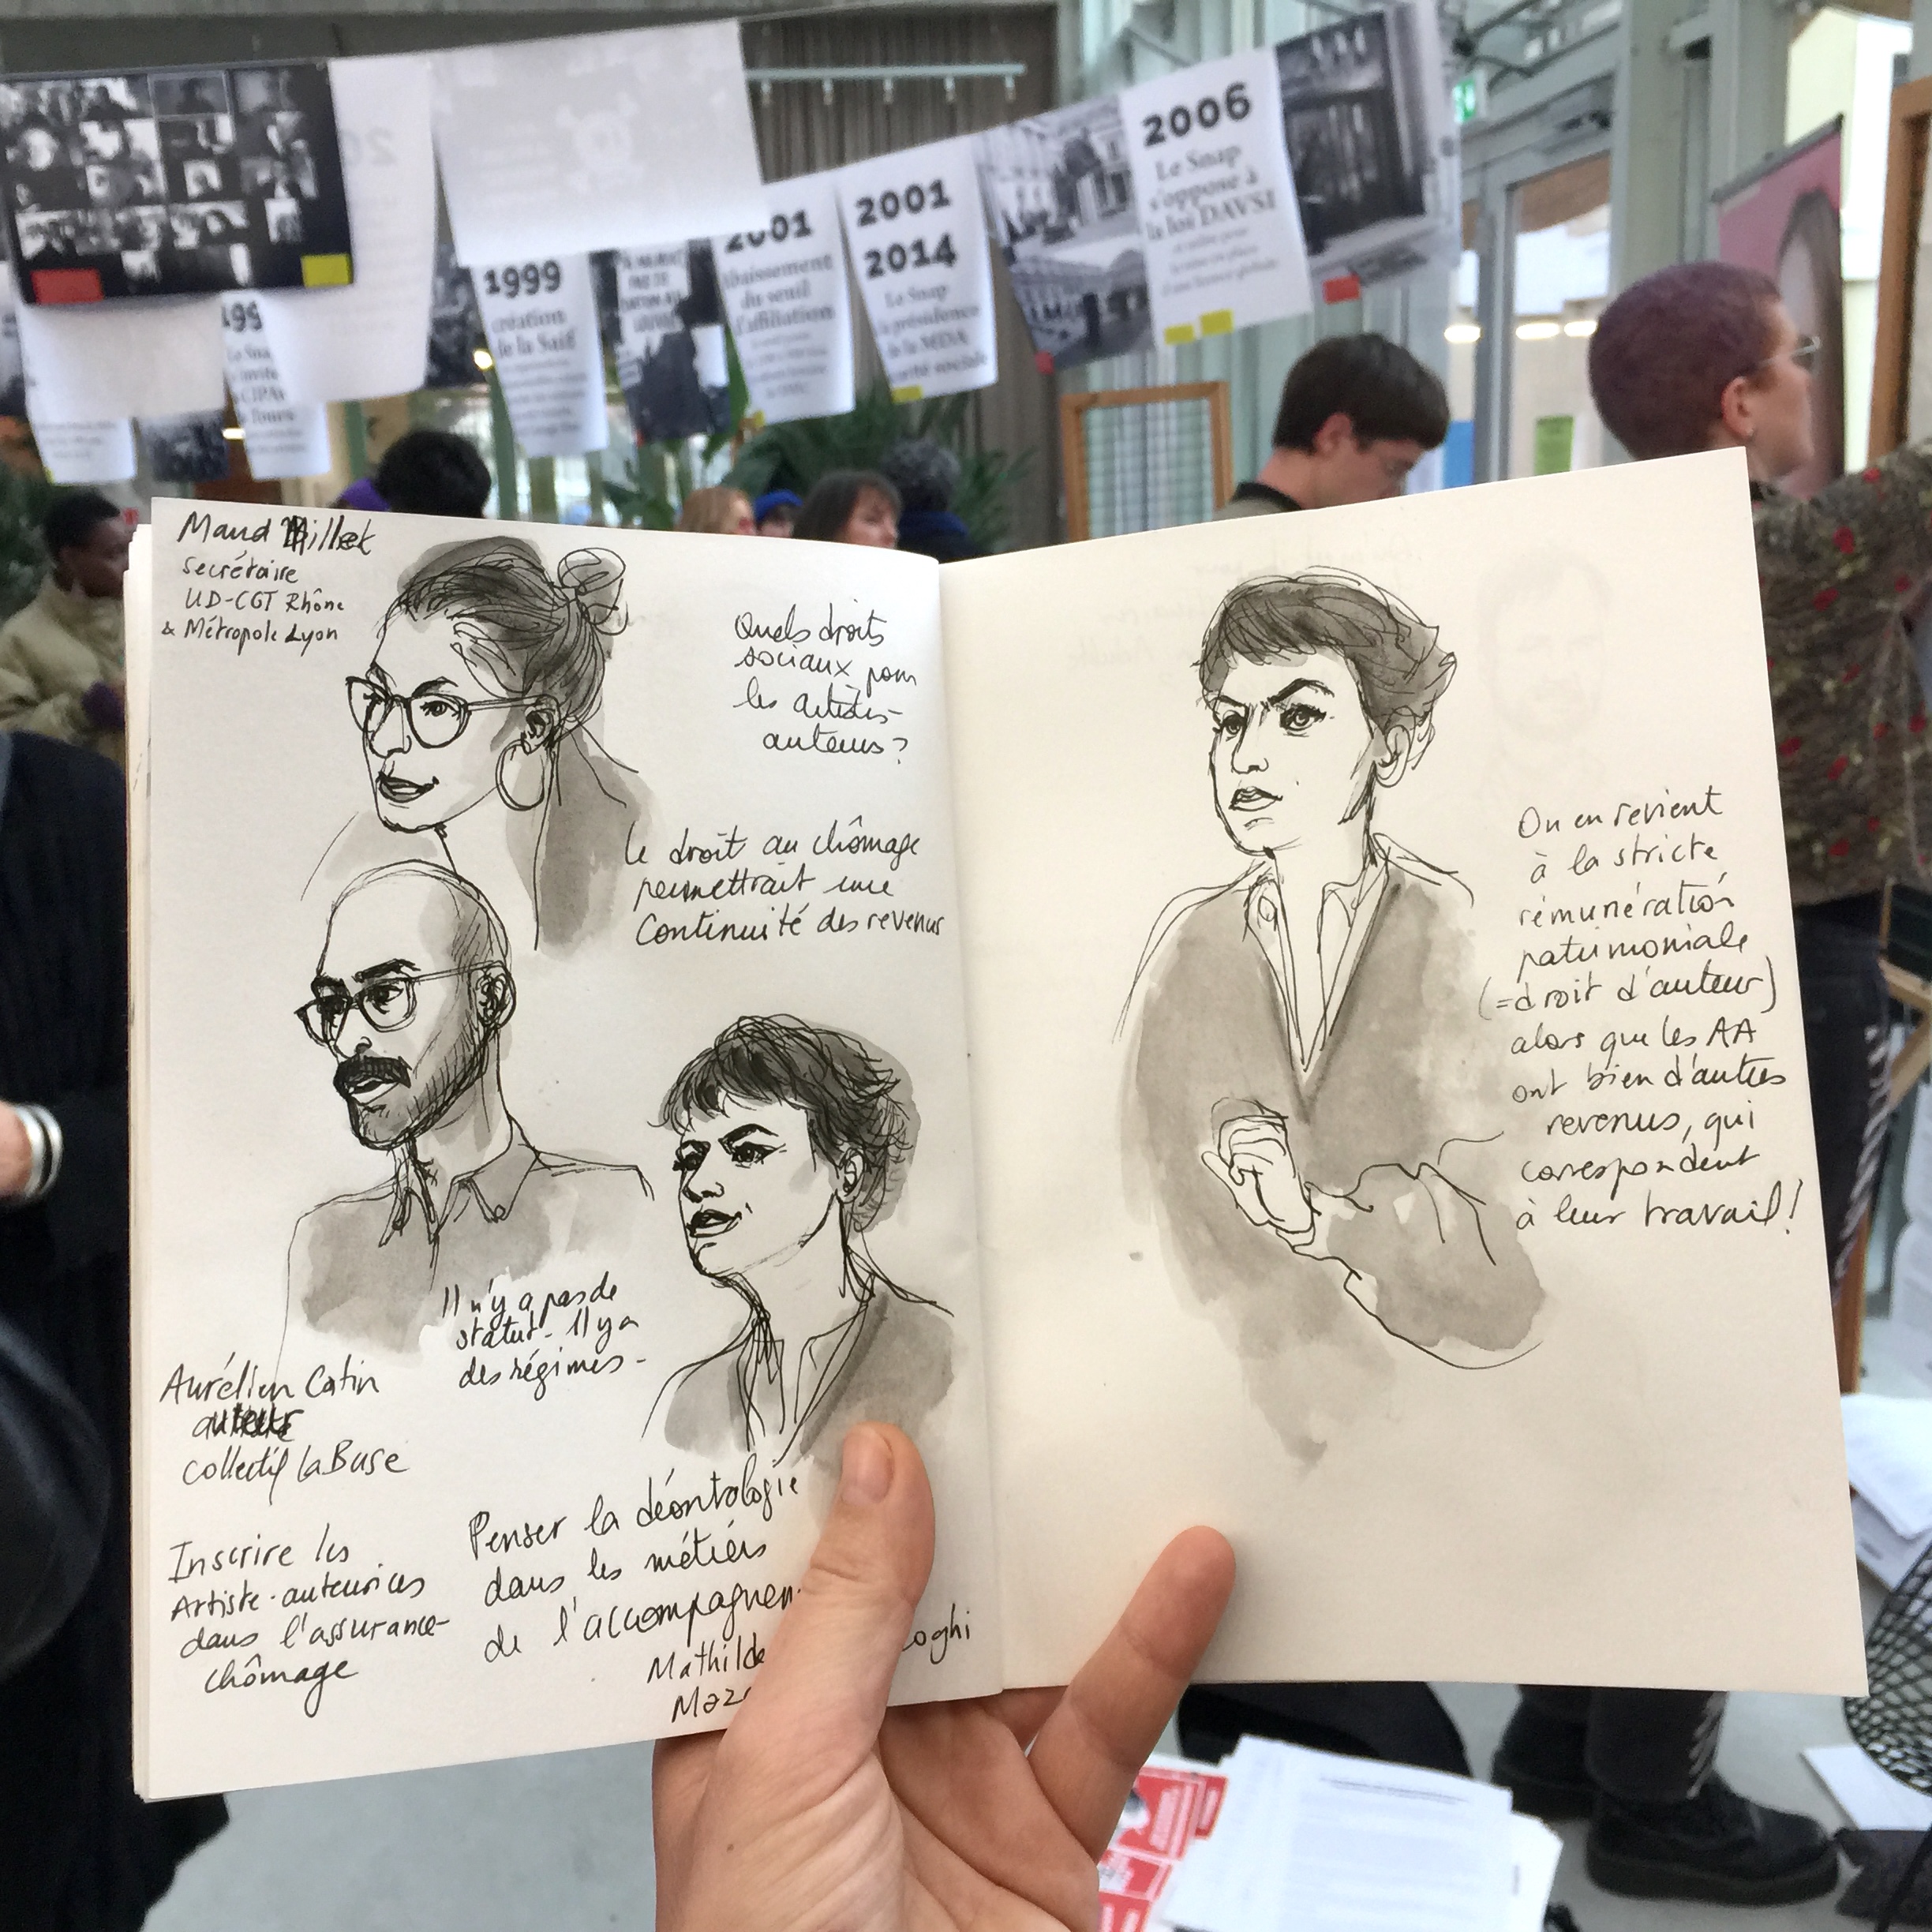 1999
création
de la Saif
2001
abaissement
du seuil
d'affiliation
2001
2014
Le Snap
à présidence
de la MDA
sécurité sociale
2006
Le Snap
s'oppose à
la loi DAVSI
Maud Millet
secrétaire
UD-CGT Rhône
& Métropole Lyon
Quels droits
sociaux pour
les artistes-
auteurs ?
le droit au chômage
permettrait une
Continuité des revenus
Il n'y a pas de
statut - Il y a
des régimes -
Aurélien Catin
auteur
collectif La Buse
Inscrire les
Artiste-auteurices
dans l'assurance-
chômage
Penser la déontologie
dans les métiers
de l'accompagnem
Mathilde oghi
Maz
On en revient
à la stricte
rémunération
patrimoniale
(= droit d'auteur)
alors que les AA
ont bien d'autres
revenus, qui
correspondent
à leur travail !